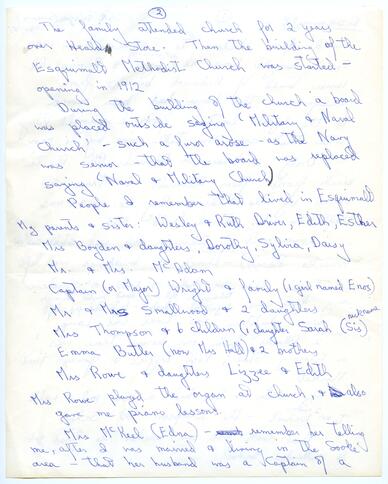 ③
The family attended church for 2 years
over Heald's Store. Then the building of the
Esquimalt Methodist Church was started -
opening in 1912
During the building of the church a board
was placed outside saying "Military & Naval
Church" - such a furor arose - as the Navy
was senior - that the board was replaced
saying "Naval & Military Church)
People I remember that lived in Esquimalt
My parents & sister: Wesley & Ruth Driver, Edith, Esther
Mrs Boyden & daughters, Dorothy, Sylvia, Daisy
Mr. & Mrs. McAdam
Captain (or Major) Wright & family (1 girl named Enos)
Mr & Mrs Smallwood & 2 daughters
nickname
Mrs Thompson & 6 children (1 daughter Sarah (Sis)
Emma Butler (now Mrs Hall) & 2 brothers
Mrs Rowe & daughters Lizzee & Edith
Mrs. Rowe played the organ at church, & also
gave me piano lessons.
Mrs McKeel (Edna) - remember her telling
me, after I was married & living in the Sooke
area - that her husband was a Captain of a